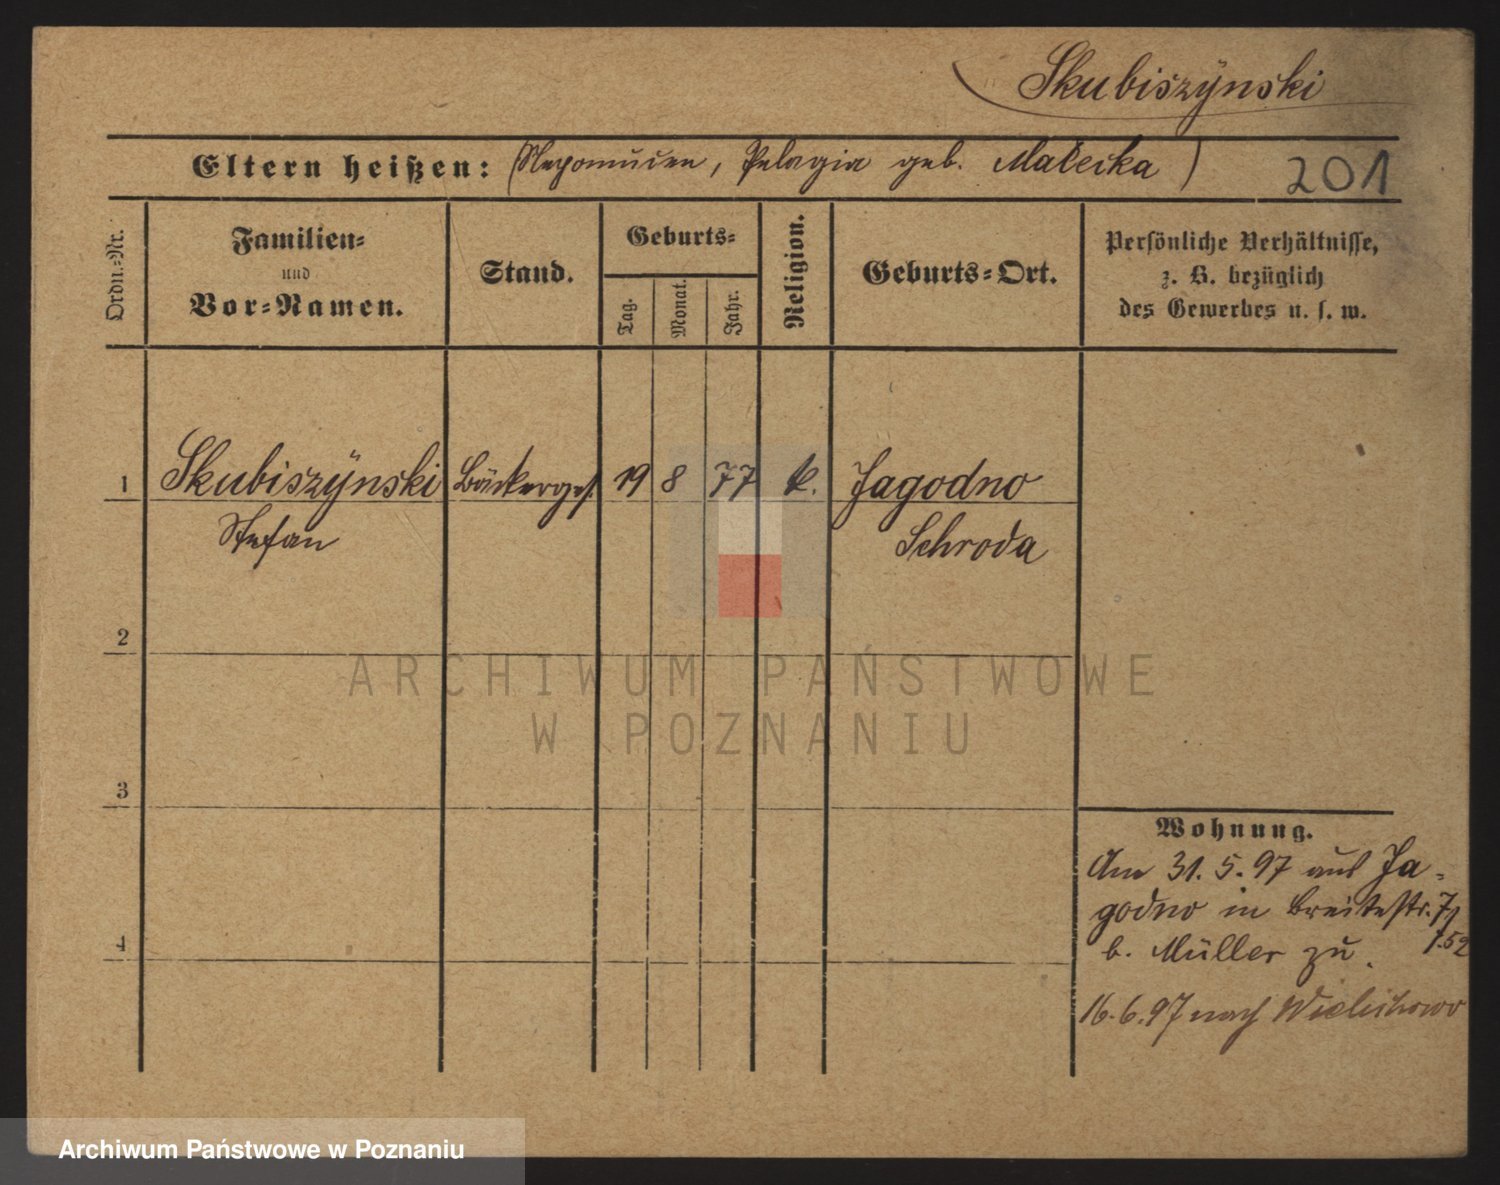 Skubiszÿnski
Eltern heißen: (Nepomucen, Pelagia geb. Małecka) 201
Ordn.-Nr.
Familien-
und
Vor-Namen.
Stand.
Geburts-
Tag.
Monat.
Jahr.
Religion.
Geburts-Ort.
Persönliche Verhältnisse,
z. B. bezüglich
des Gewerbes u. s. w.
1 Skubiszÿnski Bäckerges. 19 8 77 k. Jagodno
Stefan Schroda
2
3
4
Wohnung.
Am 31. 5. 97 aus Ja-
godno in Breitestr. 7/
b. Müller zu.
16. 6. 97 nach Wielichowo
ARCHIWUM PAŃSTWOWE
W POZNANIU
Archiwum Państwowe w Poznaniu